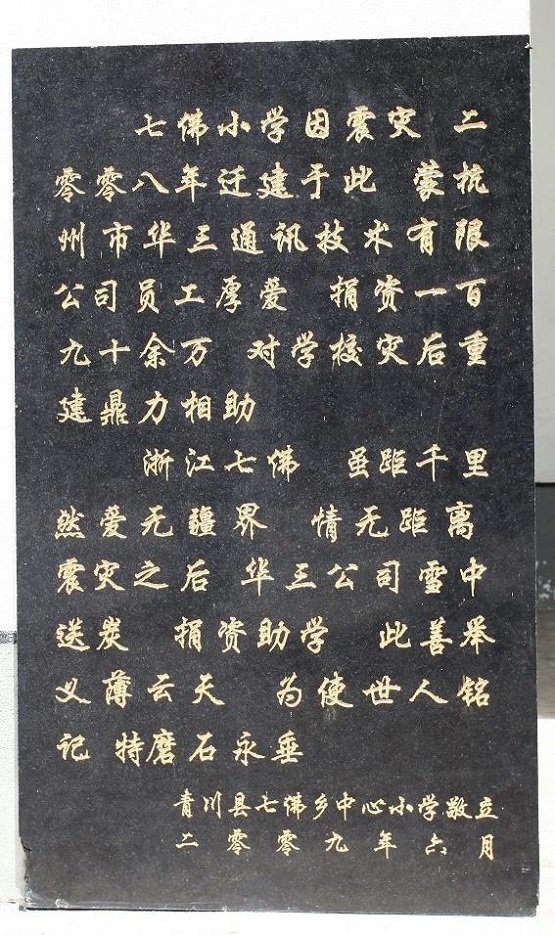 七佛小学因震灾 二
零零八年迁建于此 蒙杭
州市华三通讯技术有限
公司员工厚爱 捐资一百
九十余万 对学校灾后重
建鼎力相助
浙江七佛 虽距千里
然爱无疆界 情无距离
震灾之后 华三公司雪中
送炭 捐资助学 此善举
义薄云天 为使世人铭
记 特磨石永垂
青川县七佛乡中心小学敬立
二零零九年六月